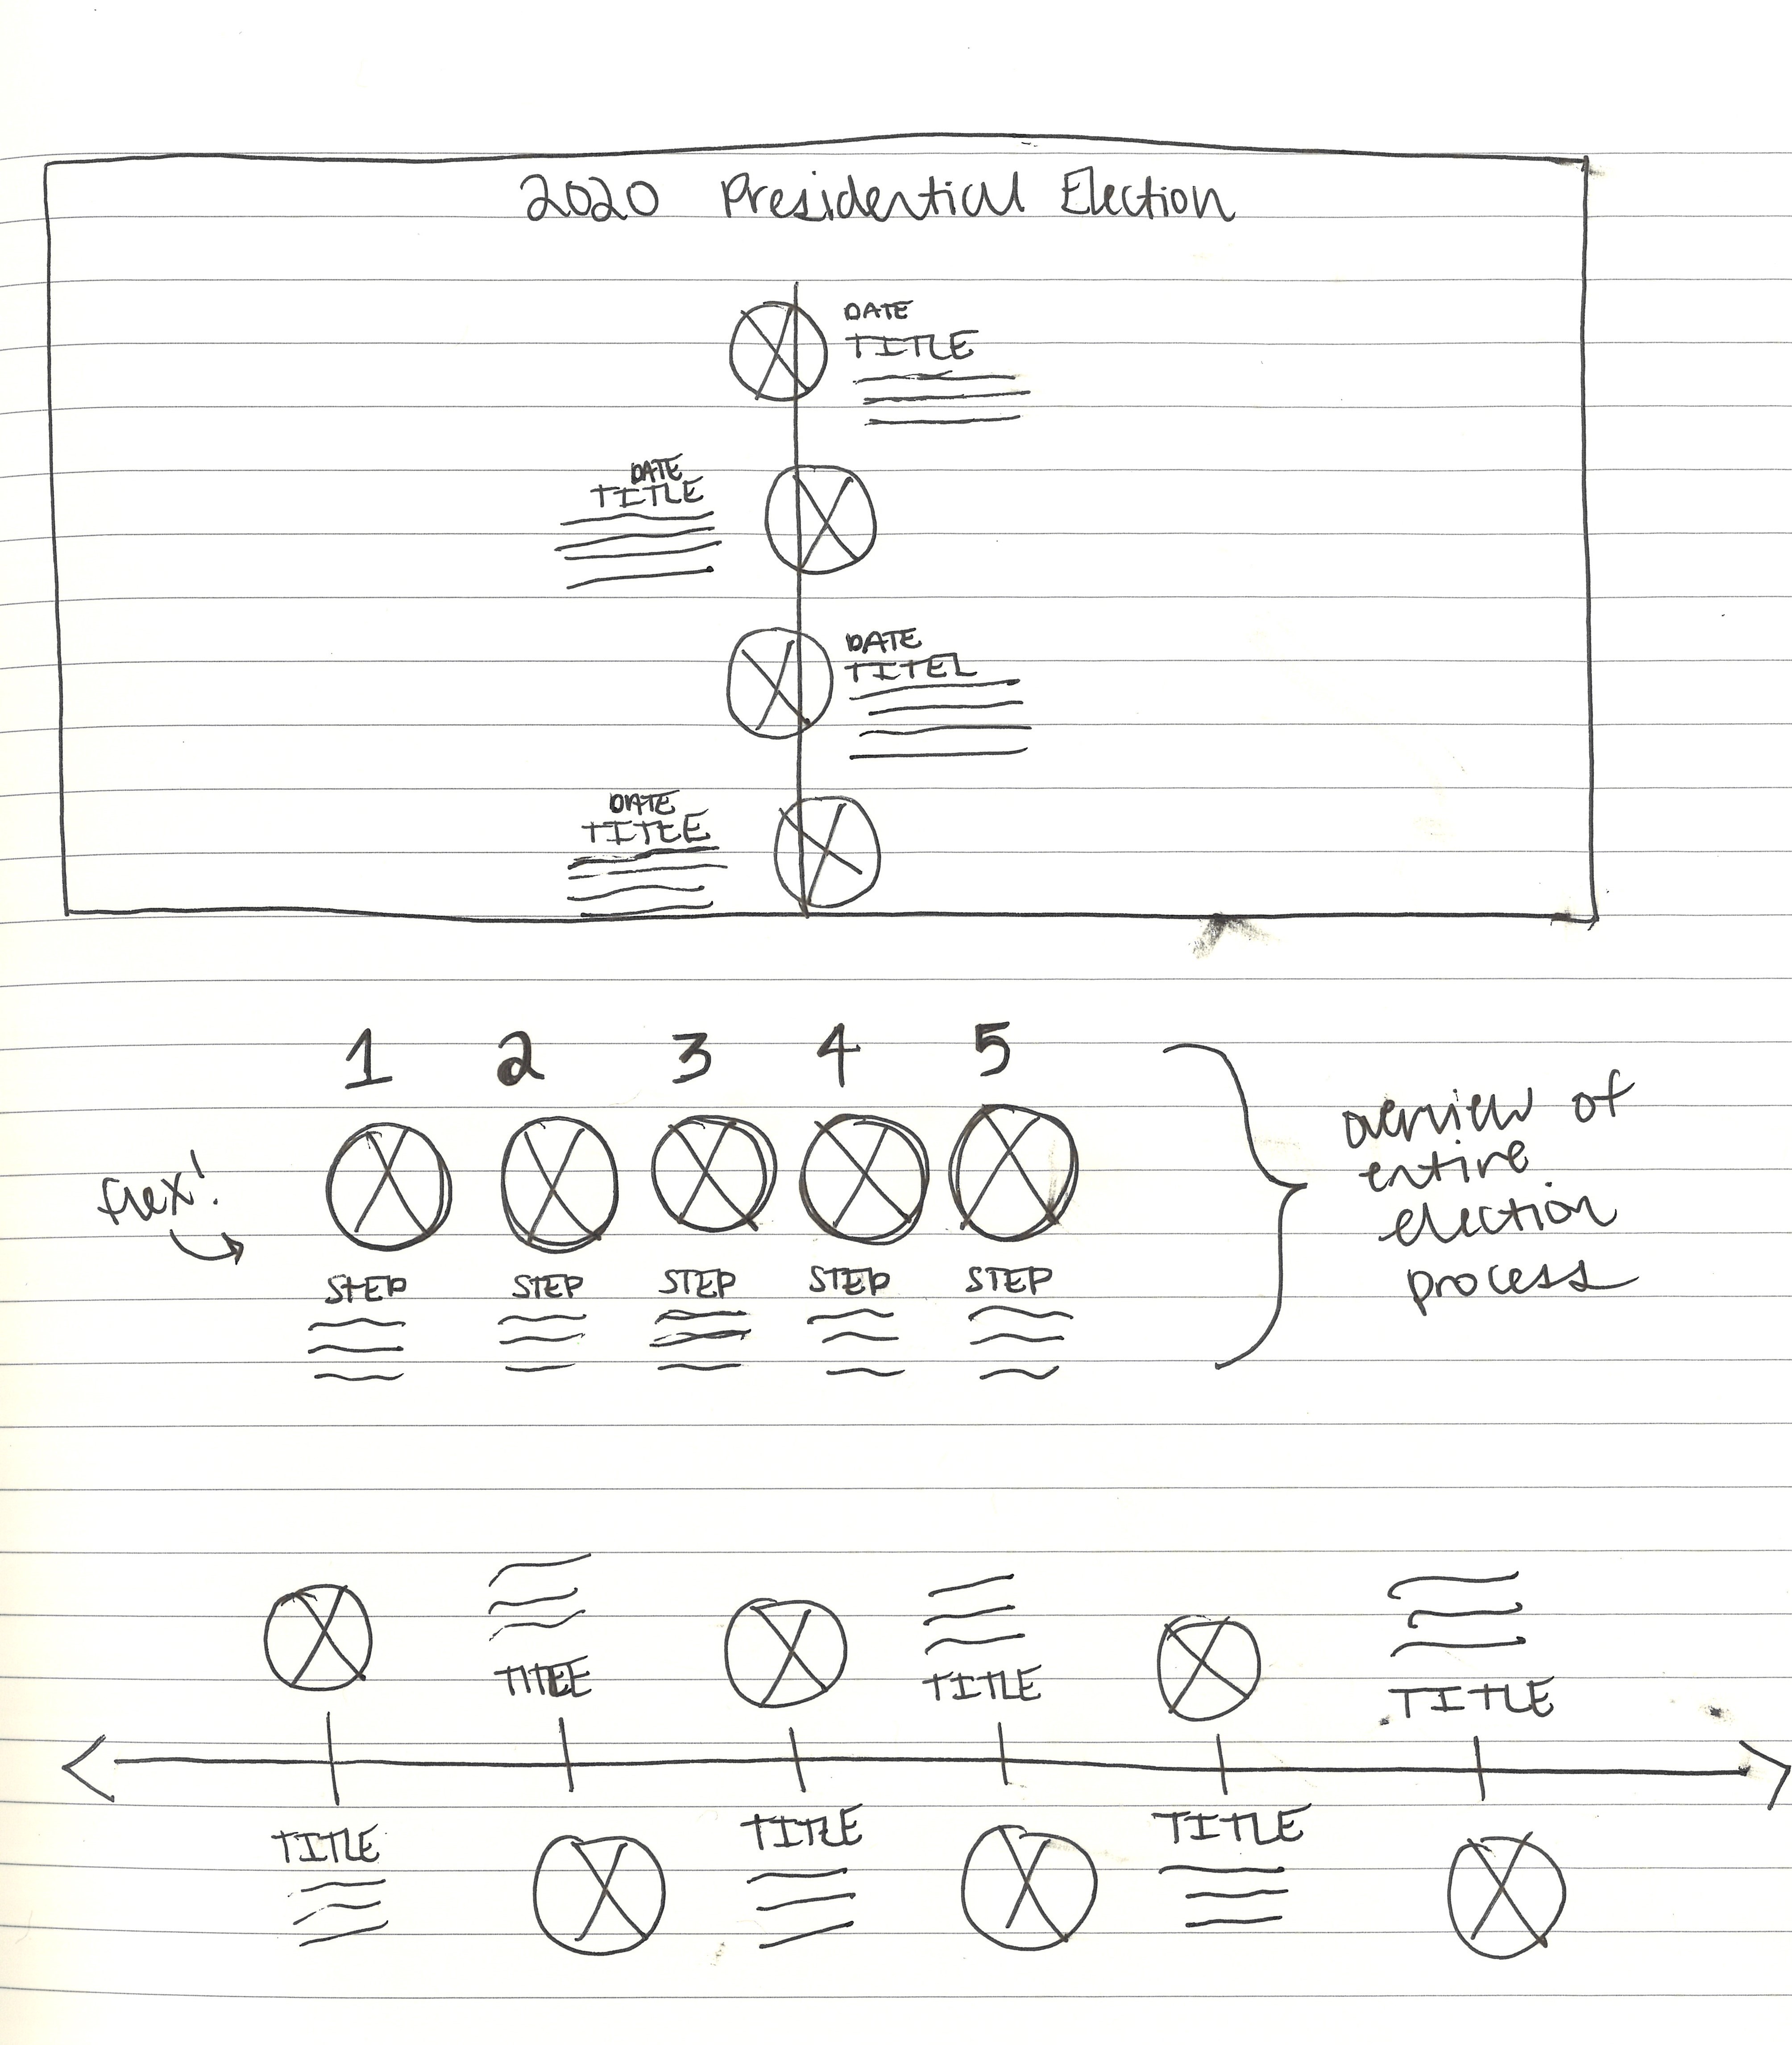 2020 Presidential Election
DATE
TITLE
DATE
TITLE
DATE
TITEL
DATE
TITLE
1 2 3 4 5
flex!
STEP STEP STEP STEP STEP
overview of
entire
election
process
TITLE TITLE TITLE
TITLE TITLE TITLE